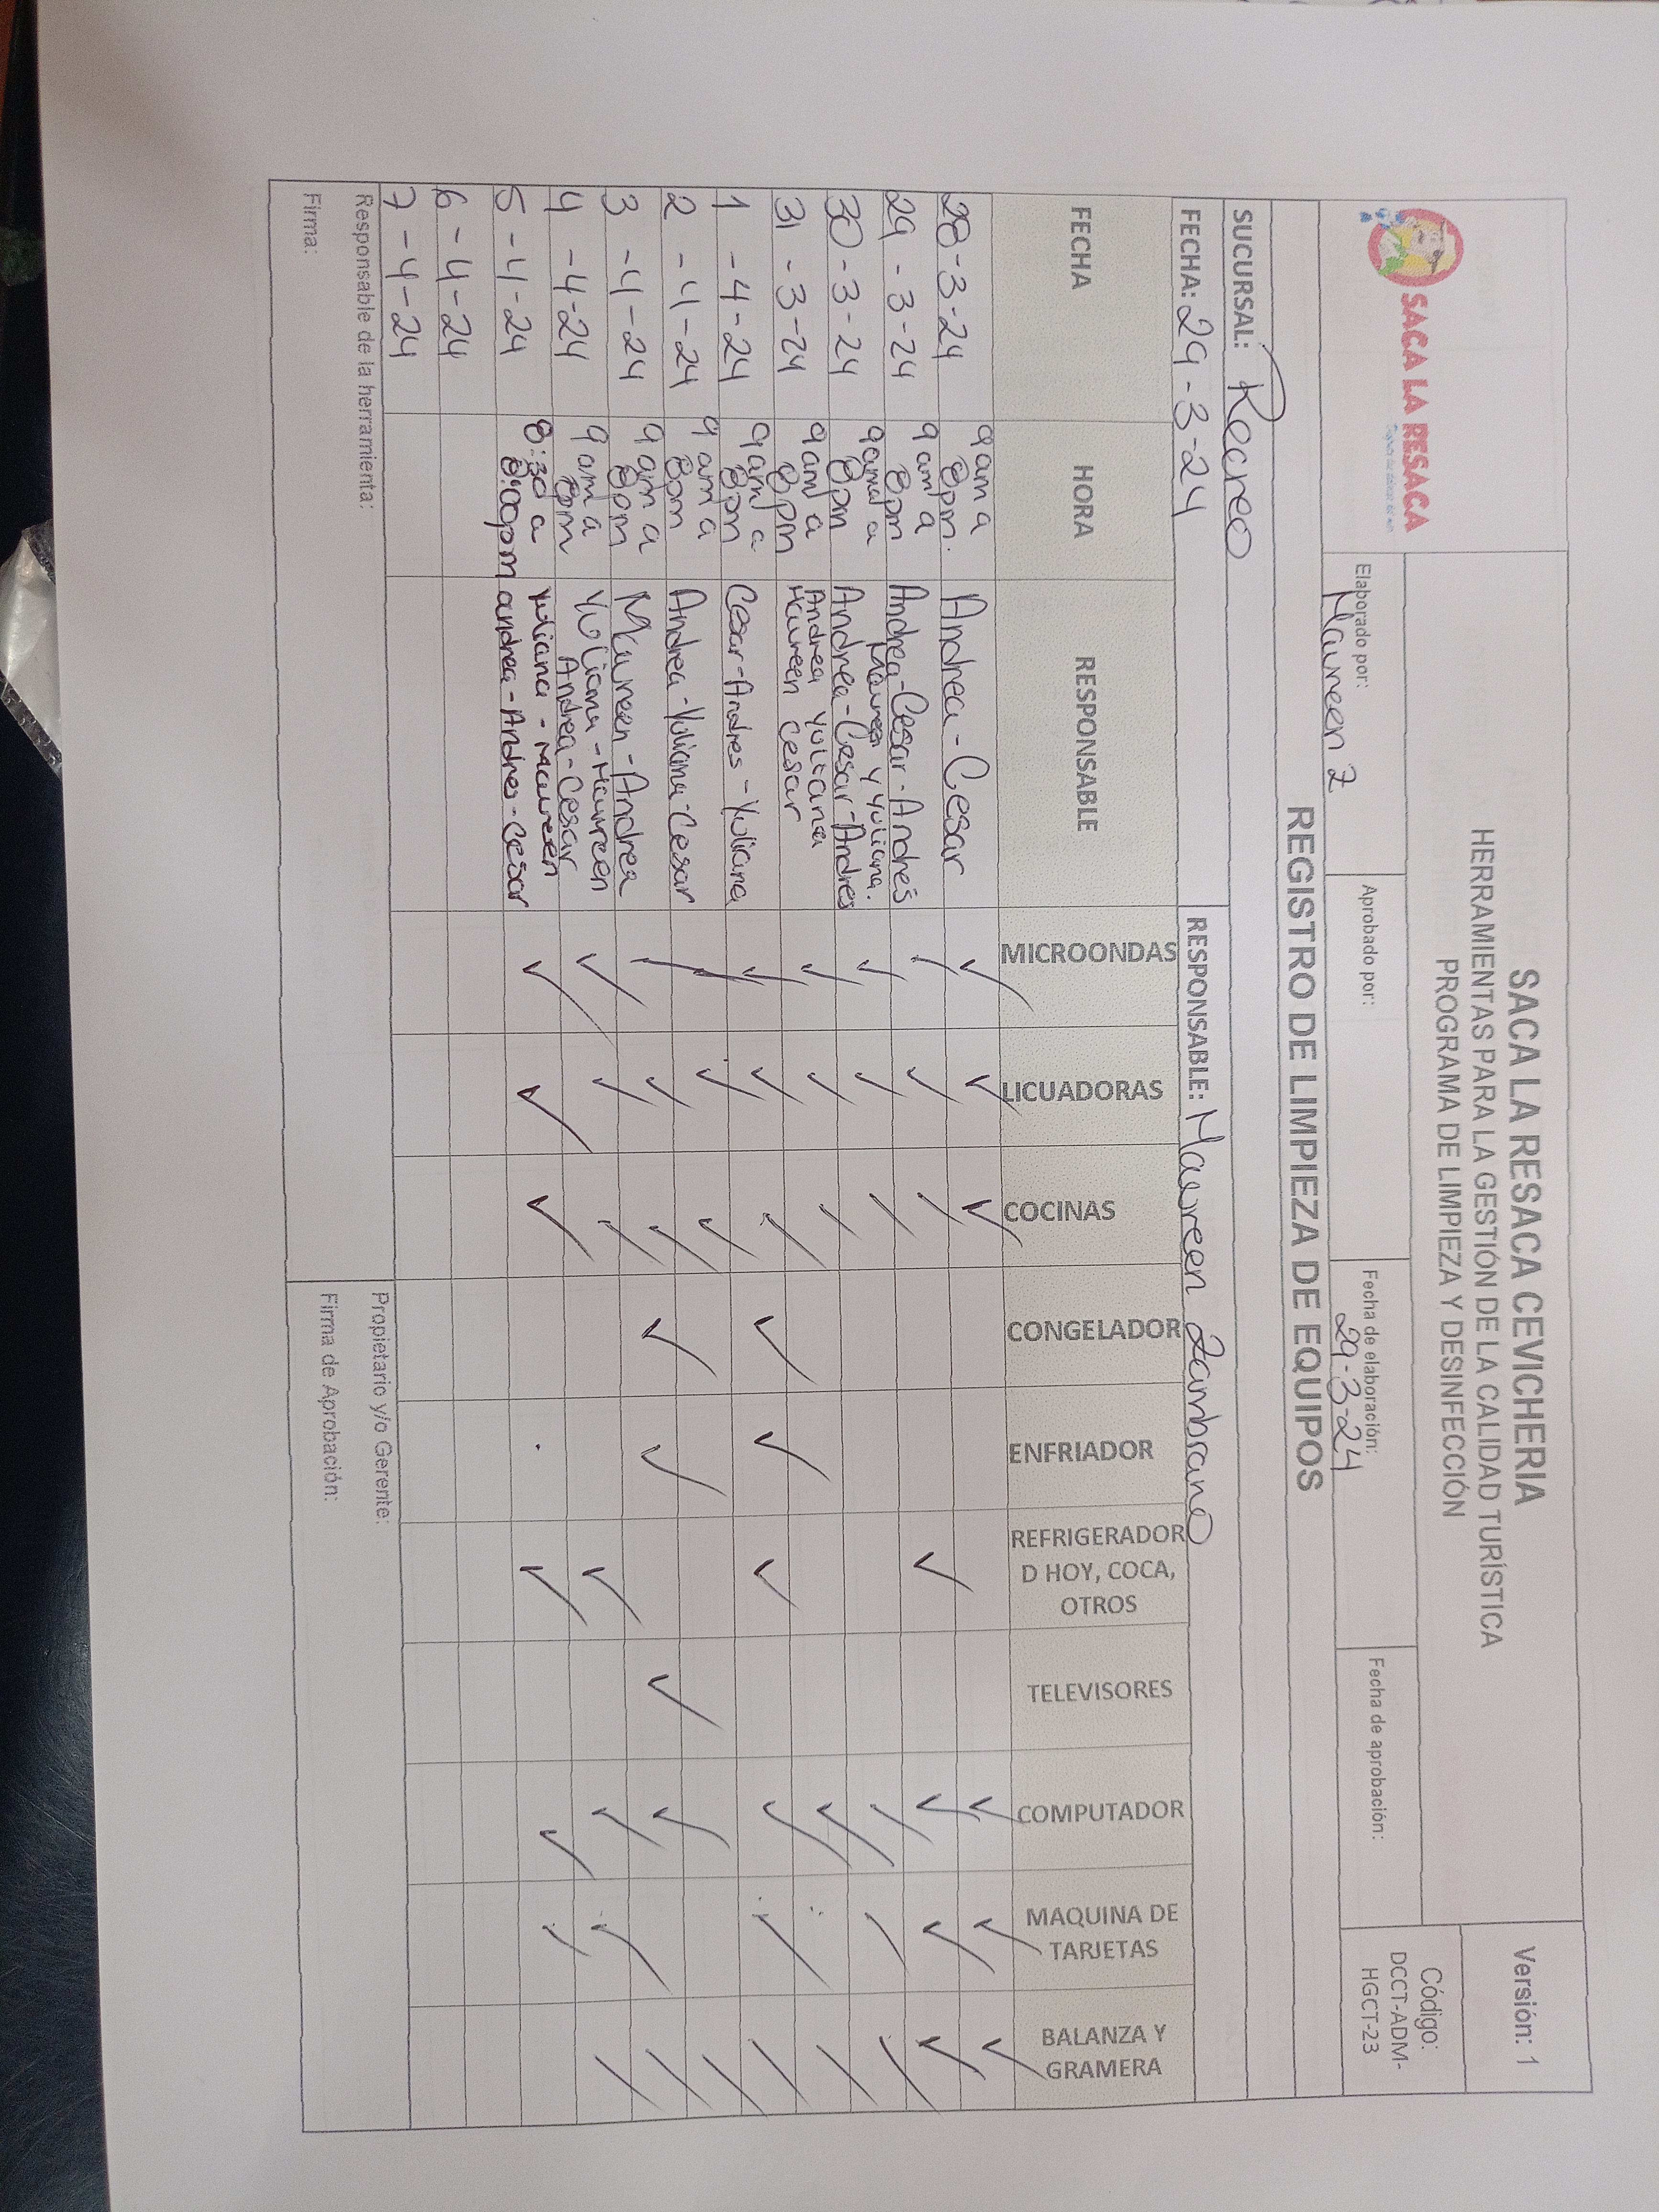 SACA LA RESACA
SACA LA RESACA CEVICHERIA
HERRAMIENTAS PARA LA GESTIÓN DE LA CALIDAD TURÍSTICA
PROGRAMA DE LIMPIEZA Y DESINFECCIÓN
Versión: 1
Código:
DCCT-ADM-
HGCT-23
Elaborado por:
Maureen Z
Aprobado por:
Fecha de elaboración:
29-3-24
Fecha de aprobación:
REGISTRO DE LIMPIEZA DE EQUIPOS
SUCURSAL: Recreo
FECHA: 29-3-24 RESPONSABLE: Maureen Zambrano
FECHA HORA RESPONSABLE MICROONDAS LICUADORAS COCINAS CONGELADOR ENFRIADOR REFRIGERADOR D HOY, COCA, OTROS TELEVISORES COMPUTADOR MAQUINA DE TARJETAS BALANZA Y GRAMERA
28-3-24 9 am a 8pm. Andrea - Cesar ✓ ✓ ✓ ✓ ✓ ✓
29-3-24 9 am a 8pm Andrea-Cesar-Andrés Maureen y Yuliana. ✓ ✓ ✓ ✓ ✓ ✓ ✓
30-3-24 9am a 8pm Andrea-Cesar-Andres ✓ ✓ ✓ ✓ ✓ ✓
31-3-24 9am a 8pm Andrea Yuliana Maureen Cesar ✓ ✓ ✓ ✓ ✓
1-4-24 9am a 8pm Cesar-Andres-Yuliana ✓ ✓ ✓ ✓ ✓ ✓ ✓ ✓ ✓
2-4-24 9 am a 8pm Andrea-Yuliana-Cesar ✓ ✓ ✓ ✓
3-4-24 9 am a 8pm Maureen-Andrea ✓ ✓ ✓ ✓ ✓ ✓ ✓ ✓
4-4-24 9 am a 8pm Yuliana-Maureen Andrea-Cesar ✓ ✓ ✓ ✓ ✓ ✓ ✓
5-4-24 8:30 a 8:00pm Yuliana - Maureen andrea-Andres-Cesar ✓ ✓ ✓ ✓ ✓ ✓
6-4-24
7-4-24
Responsable de la herramienta:
Firma:
Propietario y/o Gerente:
Firma de Aprobación: